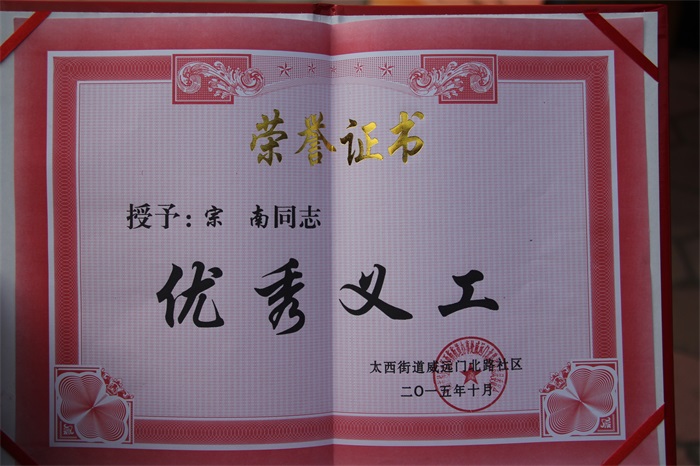 荣誉证书
授予：宗 南同志
优秀义工
太西街道威远门北路社区
二〇一五年十月